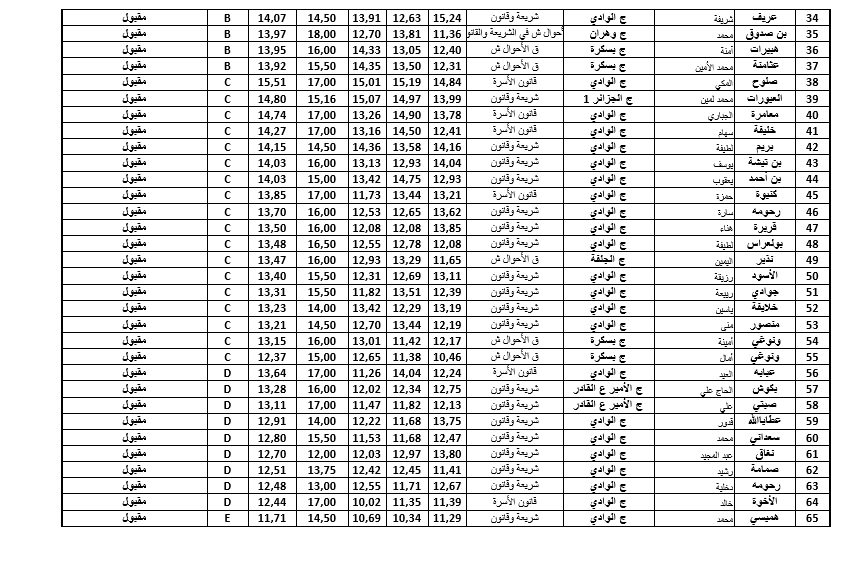 34 عريف شريفة ج الوادي شريعة وقانون 15,24 12,63 13,91 14,50 14,07 B مقبول
35 بن صدوق محمد ج وهران أحوال ش في الشريعة والقانو 11,36 13,81 12,70 18,00 13,97 B مقبول
36 هبيرات أمنة ج بسكرة ق الأحوال ش 12,40 13,05 14,33 16,00 13,95 B مقبول
37 عثامنة محمد الأمين ج بسكرة ق الأحوال ش 12,31 13,50 14,35 15,50 13,92 B مقبول
38 صلوح المكي ج الوادي قانون الأسرة 14,84 15,19 15,01 17,00 15,51 C مقبول
39 العيورات محمد لمين ج الجزائر 1 شريعة وقانون 13,99 14,97 15,07 15,16 14,80 C مقبول
40 معامرة الجباري ج الوادي قانون الأسرة 13,78 14,90 13,26 17,00 14,74 C مقبول
41 خليفة سهام ج الوادي قانون الأسرة 12,41 14,50 13,16 17,00 14,27 C مقبول
42 بريم لطيفة ج الوادي شريعة وقانون 14,16 13,58 14,36 14,50 14,15 C مقبول
43 بن تيشة يوسف ج الوادي شريعة وقانون 14,04 12,93 13,13 16,00 14,03 C مقبول
44 بن أحمد يعقوب ج الوادي شريعة وقانون 12,93 14,75 13,42 15,00 14,03 C مقبول
45 كنيوة حمزة ج الوادي قانون الأسرة 13,21 13,44 11,73 17,00 13,85 C مقبول
46 رحومه سارة ج الوادي شريعة وقانون 13,62 12,65 12,53 16,00 13,70 C مقبول
47 قريرة هناء ج الوادي شريعة وقانون 13,85 12,08 12,08 16,00 13,50 C مقبول
48 بولعراس لطيفة ج الوادي شريعة وقانون 12,08 12,78 12,55 16,50 13,48 C مقبول
49 نذير اليمين ج الجلفة ق الأحوال ش 11,65 13,29 12,93 16,00 13,47 C مقبول
50 الأسود رزيقة ج الوادي شريعة وقانون 13,11 12,69 12,31 15,50 13,40 C مقبول
51 جوادي ربيعة ج الوادي شريعة وقانون 12,39 13,51 11,82 15,50 13,31 C مقبول
52 خلايفة ياسين ج الوادي شريعة وقانون 13,19 12,29 13,42 14,00 13,23 C مقبول
53 منصور منى ج الوادي شريعة وقانون 12,19 13,44 12,70 14,50 13,21 C مقبول
54 ونوغي أمينة ج بسكرة ق الأحوال ش 12,17 11,42 13,01 16,00 13,15 C مقبول
55 ونوغي أمال ج بسكرة ق الأحوال ش 10,46 11,38 12,65 15,00 12,37 C مقبول
56 عبابه العيد ج الوادي قانون الأسرة 12,24 14,04 11,26 17,00 13,64 D مقبول
57 بكوش الحاج علي ج الأمير ع القادر شريعة وقانون 12,75 12,34 12,02 16,00 13,28 D مقبول
58 صبتي علي ج الأمير ع القادر شريعة وقانون 12,13 11,82 11,47 17,00 13,11 D مقبول
59 عطاياالله قدور ج الوادي شريعة وقانون 13,75 11,68 12,22 14,00 12,91 D مقبول
60 سعداني محمد ج الوادي شريعة وقانون 12,47 11,68 11,53 15,50 12,80 D مقبول
61 نغاق عبد المجيد ج الوادي شريعة وقانون 13,80 12,97 12,03 12,00 12,70 D مقبول
62 صمامة رشيد ج الوادي شريعة وقانون 11,41 12,45 12,42 13,75 12,51 D مقبول
63 رحومه دخلية ج الوادي شريعة وقانون 12,67 11,71 12,55 13,00 12,48 D مقبول
64 الأخوة خالد ج الوادي قانون الأسرة 11,39 11,35 10,02 17,00 12,44 D مقبول
65 هميسي محمد ج الوادي شريعة وقانون 11,29 10,34 10,69 14,50 11,71 E مقبول